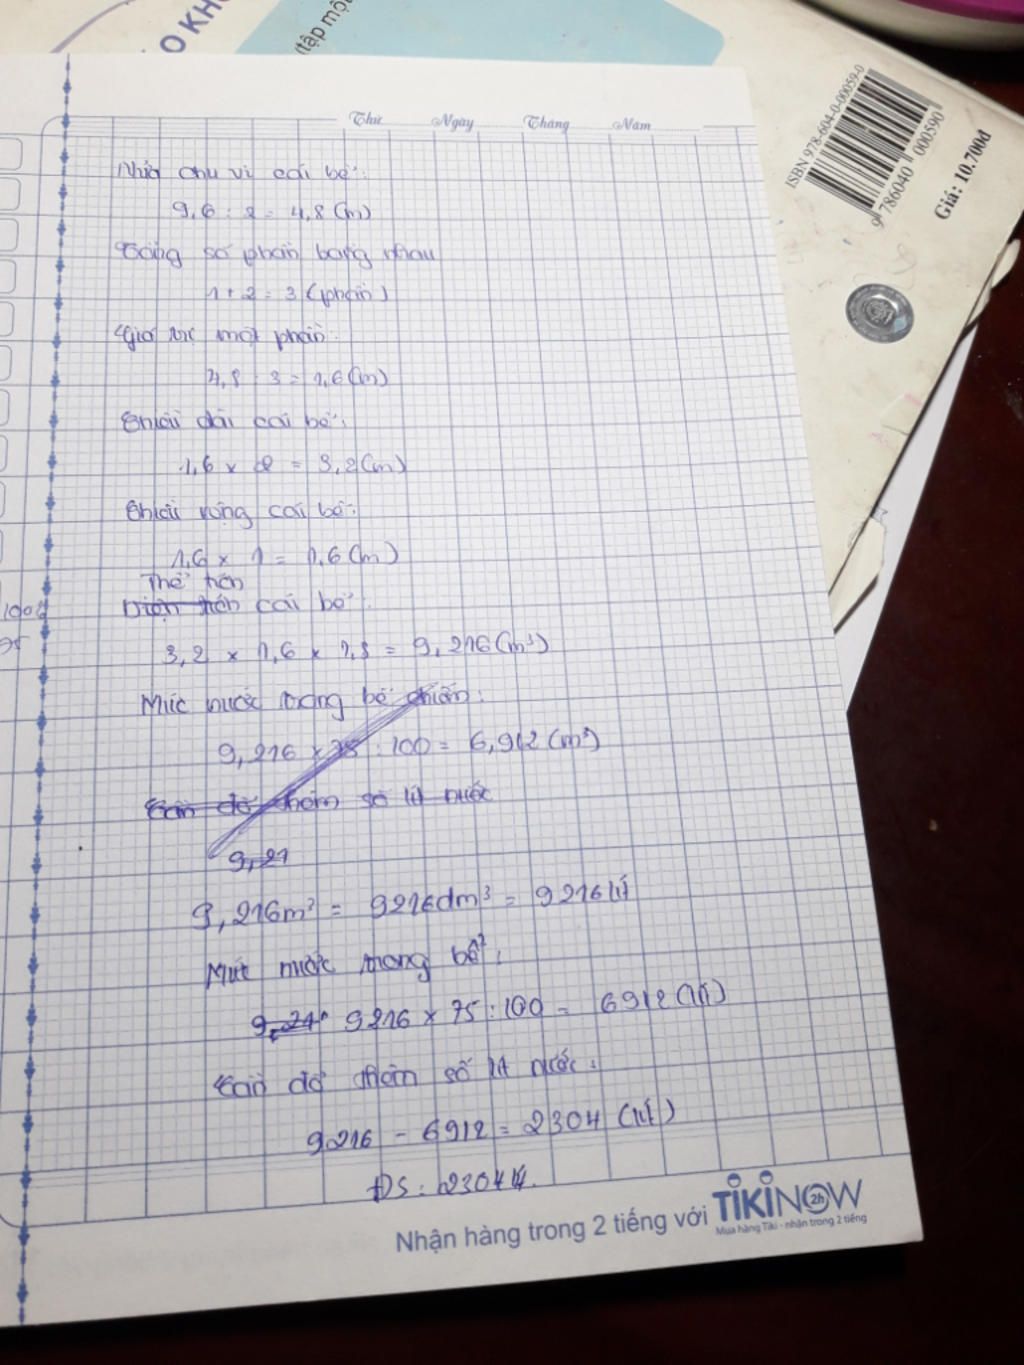 O KH
(tập một
ISBN 978-604-0-00059-0
9 786040 000590
Giá: 10.700đ
Thứ Ngày Tháng Năm
Nửa chu vi cái bể:
9,6 : 2 = 4,8 (m)
Tổng số phần bằng nhau
1 + 2 = 3 (phần)
Giá trị một phần:
4,8 : 3 = 1,6 (m)
Chiều dài cái bể:
1,6 x 2 = 3,2 (m)
Chiều rộng cái bể:
1,6 x 1 = 1,6 (m)
Thể tích
Diện tích cái bể:
3,2 x 1,6 x 1,8 = 9,216 (m³)
Mức nước trong bể chiếm:
9,216 x 75 : 100 = 6,912 (m³)
Cần đổ thêm số lít nước
9,21
9,216m³ = 9216dm³ = 9216 lít
Mức nước trong bể:
9,21 9216 x 75 : 100 = 6912 (lít)
Cần đổ thêm số lít nước:
9216 - 6912 = 2304 (lít)
ĐS: 2304 lít.
Nhận hàng trong 2 tiếng với TIKINOW 2h
Mua hàng Tiki - nhận trong 2 tiếng